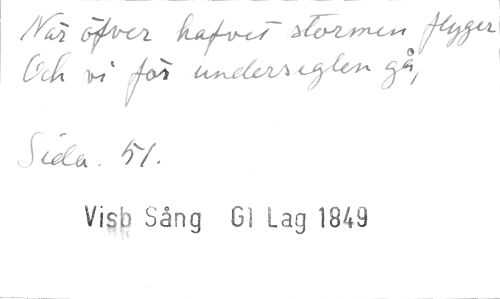 När öfver hafvet stormen flyger
Och vi för underseglen gå,
Sida. 51.
Visb Sång Gl Lag 1849